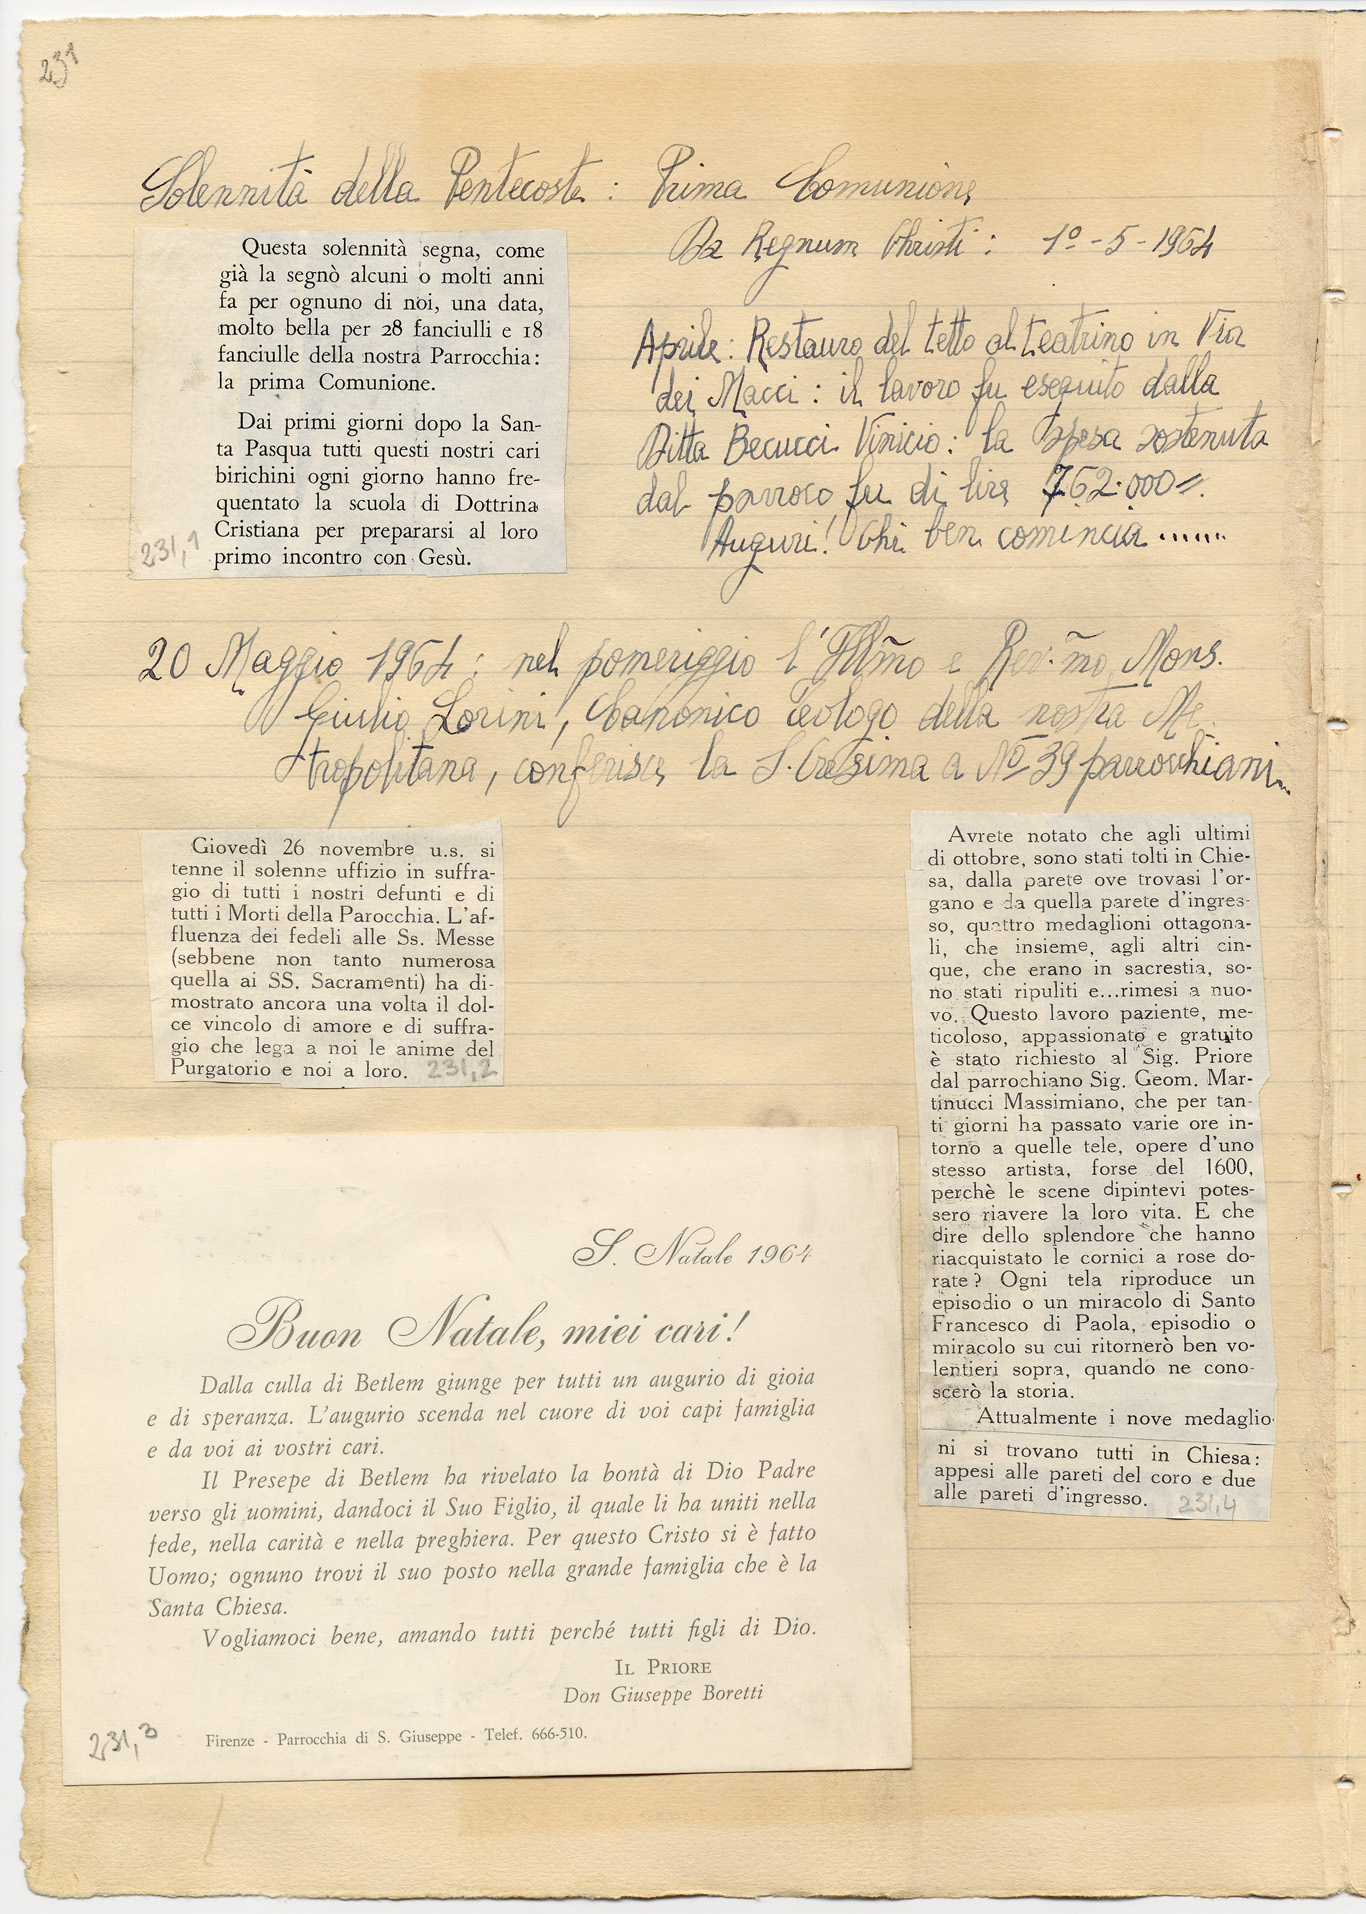 231
Solennità della Pentecoste : Prima Comunione
Da Regnum Christi : 1º - 5 - 1964
Questa solennità segna, come
già la segnò alcuni o molti anni
fa per ognuno di noi, una data,
molto bella per 28 fanciulli e 18
fanciulle della nostra Parrocchia:
la prima Comunione.
Dai primi giorni dopo la San-
ta Pasqua tutti questi nostri cari
birichini ogni giorno hanno fre-
quentato la scuola di Dottrina
Cristiana per prepararsi al loro
primo incontro con Gesù.
231,1
Aprile: Restauro del tetto al teatrino in Via
dei Macci : il lavoro fu eseguito dalla
Ditta Becucci Vinicio: la spesa sostenuta
dal parroco fu di lire 762.000=.
Auguri! Chi ben comincia ......
20 Maggio 1964: nel pomeriggio l'Illm̃o e Rev.m̃o Mons.
Giulio Lorini, Canonico Teologo della nostra Me-
tropolitana, conferisce la S. Cresima a Nº 39 parrocchiani.
Giovedì 26 novembre u.s. si
tenne il solenne uffizio in suffra-
gio di tutti i nostri defunti e di
tutti i Morti della Parocchia. L'af-
fluenza dei fedeli alle Ss. Messe
(sebbene non tanto numerosa
quella ai SS. Sacramenti) ha di-
mostrato ancora una volta il dol-
ce vincolo di amore e di suffra-
gio che lega a noi le anime del
Purgatorio e noi a loro. 231,2
Avrete notato che agli ultimi
di ottobre, sono stati tolti in Chie-
sa, dalla parete ove trovasi l'or-
gano e da quella parete d'ingres-
so, quattro medaglioni ottagona-
li, che insieme, agli altri cin-
que, che erano in sacrestia, so-
no stati ripuliti e...rimesi a nuo-
vo. Questo lavoro paziente, me-
ticoloso, appassionato e gratuito
è stato richiesto al Sig. Priore
dal parrochiano Sig. Geom. Mar-
tinucci Massimiano, che per tan-
ti giorni ha passato varie ore in-
torno a quelle tele, opere d'uno
stesso artista, forse del 1600,
perchè le scene dipintevi potes-
sero riavere la loro vita. E che
dire dello splendore che hanno
riacquistato le cornici a rose do-
rate? Ogni tela riproduce un
episodio o un miracolo di Santo
Francesco di Paola, episodio o
miracolo su cui ritornerò ben vo-
lentieri sopra, quando ne cono-
scerò la storia.
Attualmente i nove medaglio
ni si trovano tutti in Chiesa:
appesi alle pareti del coro e due
alle pareti d'ingresso. 231,4
S. Natale 1964
Buon Natale, miei cari!
Dalla culla di Betlem giunge per tutti un augurio di gioia
e di speranza. L'augurio scenda nel cuore di voi capi famiglia
e da voi ai vostri cari.
Il Presepe di Betlem ha rivelato la bontà di Dio Padre
verso gli uomini, dandoci il Suo Figlio, il quale li ha uniti nella
fede, nella carità e nella preghiera. Per questo Cristo si è fatto
Uomo; ognuno trovi il suo posto nella grande famiglia che è la
Santa Chiesa.
Vogliamoci bene, amando tutti perché tutti figli di Dio.
IL PRIORE
Don Giuseppe Boretti
231,3
Firenze - Parrocchia di S. Giuseppe - Telef. 666-510.